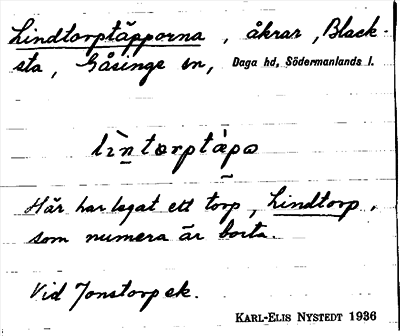 Lindtorptäpporna, åkrar, Black-
sta, Gåsinge sn, Daga hd, Södermanlands l.
lìntorptäpə
Här har legat ett torp, Lindtorp,
som numera är borta.
Vid Jonstorp ek.
KARL-ELIS NYSTEDT 1936